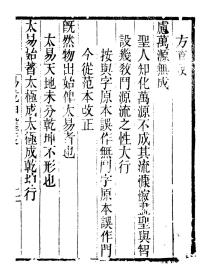 方
慮萬源無成
聖人知化萬源不成其流慮聖與智
設幾教門源流之性大行
按與字原本誤作無門字原本誤作門
今從范本改正
既然物出始俾太易者也
太易天地未分乾坤不形也
太易始著太極成太極成乾坤行